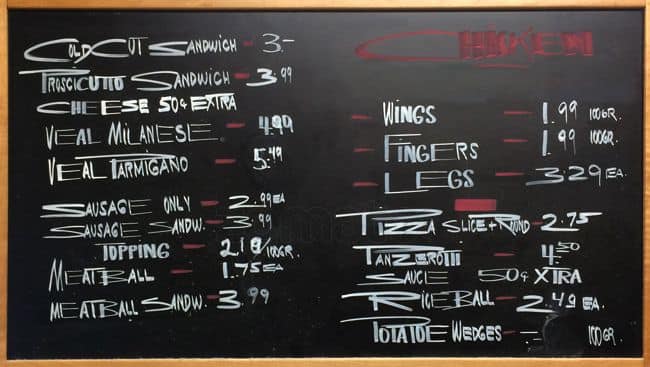 COLD CUT SANDWICH - 3.-
PROSCIUTTO SANDWICH - 3.99
CHEESE 50¢ EXTRA
VEAL MILANESE - 4.99
VEAL PARMIGANO - 5.49
SAUSAGE ONLY - 2.99 EA
SAUSAGE SANDW. - 3.99
TOPPING - 2.18/100GR.
MEATBALL - 1.75 EA
MEATBALL SANDW. - 3.99
CHICKEN
- WINGS - 1.99 100GR.
- FINGERS - 1.99 100GR.
- LEGS - 3.29 EA.
PIZZA SLICE + ROUND - 2.75
PANZEROTTI - 4.50
SAUCE 50¢ XTRA
RICEBALL - 2.49 EA.
POTATOE WEDGES - 100GR.